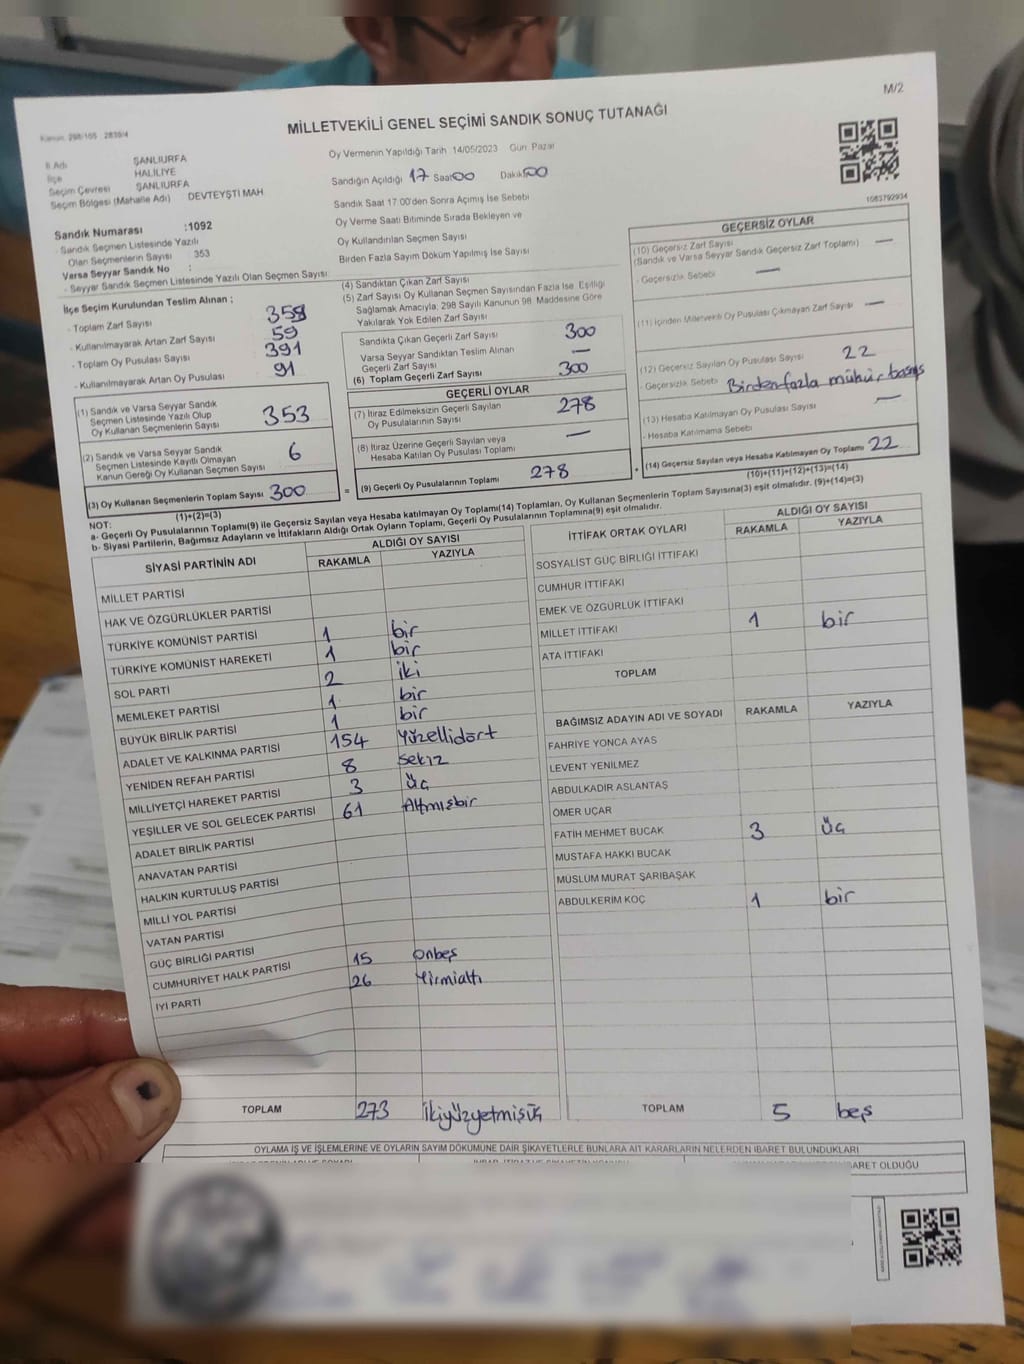 M/2
MİLLETVEKİLİ GENEL SEÇİMİ SANDIK SONUÇ TUTANAĞI
Kanun: 298/105 2839/4
İl Adı ŞANLIURFA
İlçe HALİLİYE
Seçim Çevresi ŞANLIURFA
Seçim Bölgesi (Mahalle Adı) DEVTEYŞTİ MAH
Oy Vermenin Yapıldığı Tarih 14/05/2023 Gün: Pazar
Sandığın Açıldığı 17 Saat 00 Dakika 00
Sandık Saat 17:00'den Sonra Açılmış İse Sebebi
Oy Verme Saati Bitiminde Sırada Bekleyen ve
Oy Kullandırılan Seçmen Sayısı
Birden Fazla Sayım Döküm Yapılmış İse Sayısı
1083792934
Sandık Numarası :1092
- Sandık Seçmen Listesinde Yazılı
Olan Seçmenlerin Sayısı 353
Varsa Seyyar Sandık No :
- Seyyar Sandık Seçmen Listesinde Yazılı Olan Seçmen Sayısı:
İlçe Seçim Kurulundan Teslim Alınan ;
- Toplam Zarf Sayısı 358
- Kullanılmayarak Artan Zarf Sayısı 59
- Toplam Oy Pusulası Sayısı 391
- Kullanılmayarak Artan Oy Pusulası 91
(1) Sandık ve Varsa Seyyar Sandık
Seçmen Listesinde Yazılı Olup
Oy Kullanan Seçmenlerin Sayısı 353
(2) Sandık ve Varsa Seyyar Sandık
Seçmen Listesinde Kayıtlı Olmayan
Kanun Gereği Oy Kullanan Seçmen Sayısı 6
(3) Oy Kullanan Seçmenlerin Toplam Sayısı 300
(1)+(2)=(3)
(4) Sandıktan Çıkan Zarf Sayısı
(5) Zarf Sayısı Oy Kullanan Seçmen Sayısından Fazla İse, Eşitliği
Sağlamak Amacıyla; 298 Sayılı Kanunun 98. Maddesine Göre
Yakılarak Yok Edilen Zarf Sayısı
Sandıkta Çıkan Geçerli Zarf Sayısı 300
Varsa Seyyar Sandıktan Teslim Alınan
Geçerli Zarf Sayısı —
(6) Toplam Geçerli Zarf Sayısı 300
GEÇERLİ OYLAR
(7) İtiraz Edilmeksizin Geçerli Sayılan
Oy Pusulalarının Sayısı 278
(8) İtiraz Üzerine Geçerli Sayılan veya
Hesaba Katılan Oy Pusulası Toplamı —
= (9) Geçerli Oy Pusulalarının Toplamı 278 +
GEÇERSİZ OYLAR
(10) Geçersiz Zarf Sayısı
(Sandık ve Varsa Seyyar Sandık Geçersiz Zarf Toplamı) —
- Geçersizlik Sebebi —
(11) İçinden Milletvekili Oy Pusulası Çıkmayan Zarf Sayısı —
(12) Geçersiz Sayılan Oy Pusulası Sayısı 22
Geçersizlik Sebebi Birden fazla mühür basış
(13) Hesaba Katılmayan Oy Pusulası Sayısı —
- Hesaba Katılmama Sebebi
(14) Geçersiz Sayılan veya Hesaba Katılmayan Oy Toplamı 22
(10)+(11)+(12)+(13)=(14)
NOT:
a- Geçerli Oy Pusulalarının Toplamı(9) ile Geçersiz Sayılan veya Hesaba katılmayan Oy Toplamı(14) Toplamları, Oy Kullanan Seçmenlerin Toplam Sayısına(3) eşit olmalıdır. (9)+(14)=(3)
b- Siyasi Partilerin, Bağımsız Adayların ve İttifakların Aldığı Ortak Oyların Toplamı, Geçerli Oy Pusulalarının Toplamına(9) eşit olmalıdır.
SİYASİ PARTİNİN ADI ALDIĞI OY SAYISI
RAKAMLA YAZIYLA
MİLLET PARTİSİ
HAK VE ÖZGÜRLÜKLER PARTİSİ
TÜRKİYE KOMÜNİST PARTİSİ 1 bir
TÜRKİYE KOMÜNİST HAREKETİ 1 bir
SOL PARTİ 2 iki
MEMLEKET PARTİSİ 1 bir
BÜYÜK BİRLİK PARTİSİ 1 bir
ADALET VE KALKINMA PARTİSİ 154 Yüzellidört
YENİDEN REFAH PARTİSİ 8 sekiz
MİLLİYETÇİ HAREKET PARTİSİ 3 üç
YEŞİLLER VE SOL GELECEK PARTİSİ 61 Altmışbir
ADALET BİRLİK PARTİSİ
ANAVATAN PARTİSİ
HALKIN KURTULUŞ PARTİSİ
MİLLİ YOL PARTİSİ
VATAN PARTİSİ
GÜÇ BİRLİĞİ PARTİSİ
CUMHURİYET HALK PARTİSİ 15 onbeş
İYİ PARTİ 26 Yirmialtı
TOPLAM 273 ikiyüzyetmişüç
İTTİFAK ORTAK OYLARI ALDIĞI OY SAYISI
RAKAMLA YAZIYLA
SOSYALİST GÜÇ BİRLİĞİ İTTİFAKI
CUMHUR İTTİFAKI
EMEK VE ÖZGÜRLÜK İTTİFAKI
MİLLET İTTİFAKI 1 bir
ATA İTTİFAKI
TOPLAM
BAĞIMSIZ ADAYIN ADI VE SOYADI RAKAMLA YAZIYLA
FAHRİYE YONCA AYAS
LEVENT YENİLMEZ
ABDULKADİR ASLANTAŞ
ÖMER UÇAR
FATİH MEHMET BUCAK 3 üç
MUSTAFA HAKKI BUCAK
MÜSLÜM MURAT ŞARIBAŞAK
ABDULKERİM KOÇ 1 bir
TOPLAM 5 beş
OYLAMA İŞ VE İŞLEMLERİNE VE OYLARIN SAYIM DÖKÜMÜNE DAİR ŞİKAYETLERLE BUNLARA AİT KARARLARIN NELERDEN İBARET BULUNDUKLARI
BARET OLDUĞU